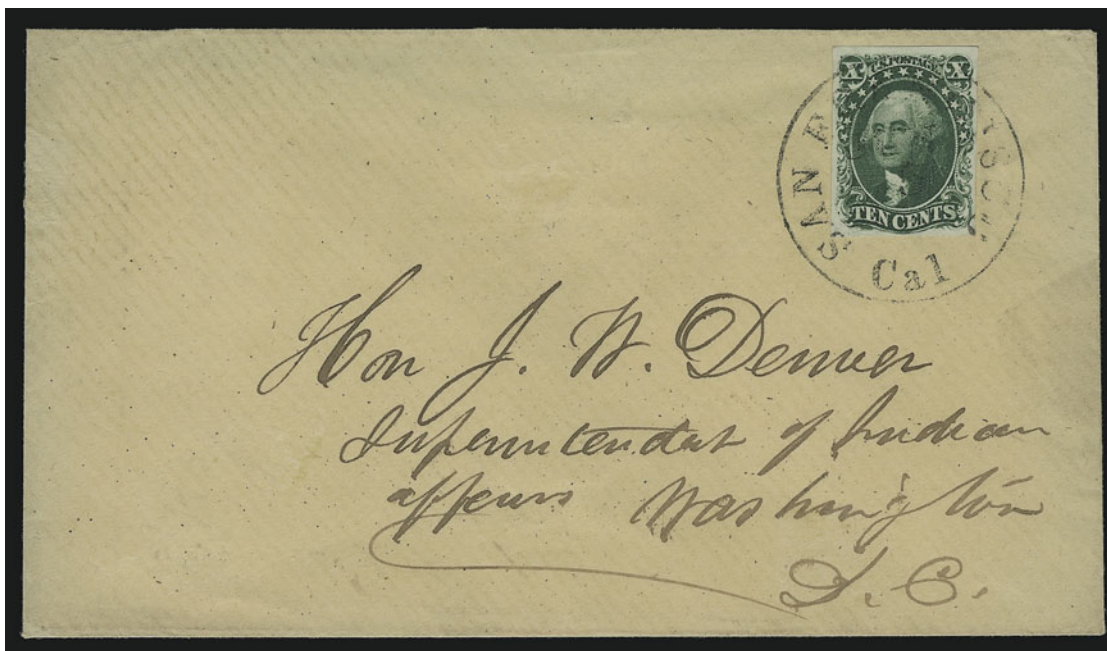 X U.S. POSTAGE X
TEN CENTS
SAN F ISCO
Cal
Hon J. W. Denver
Superintendat of Indian
affairs Washington
D.C.